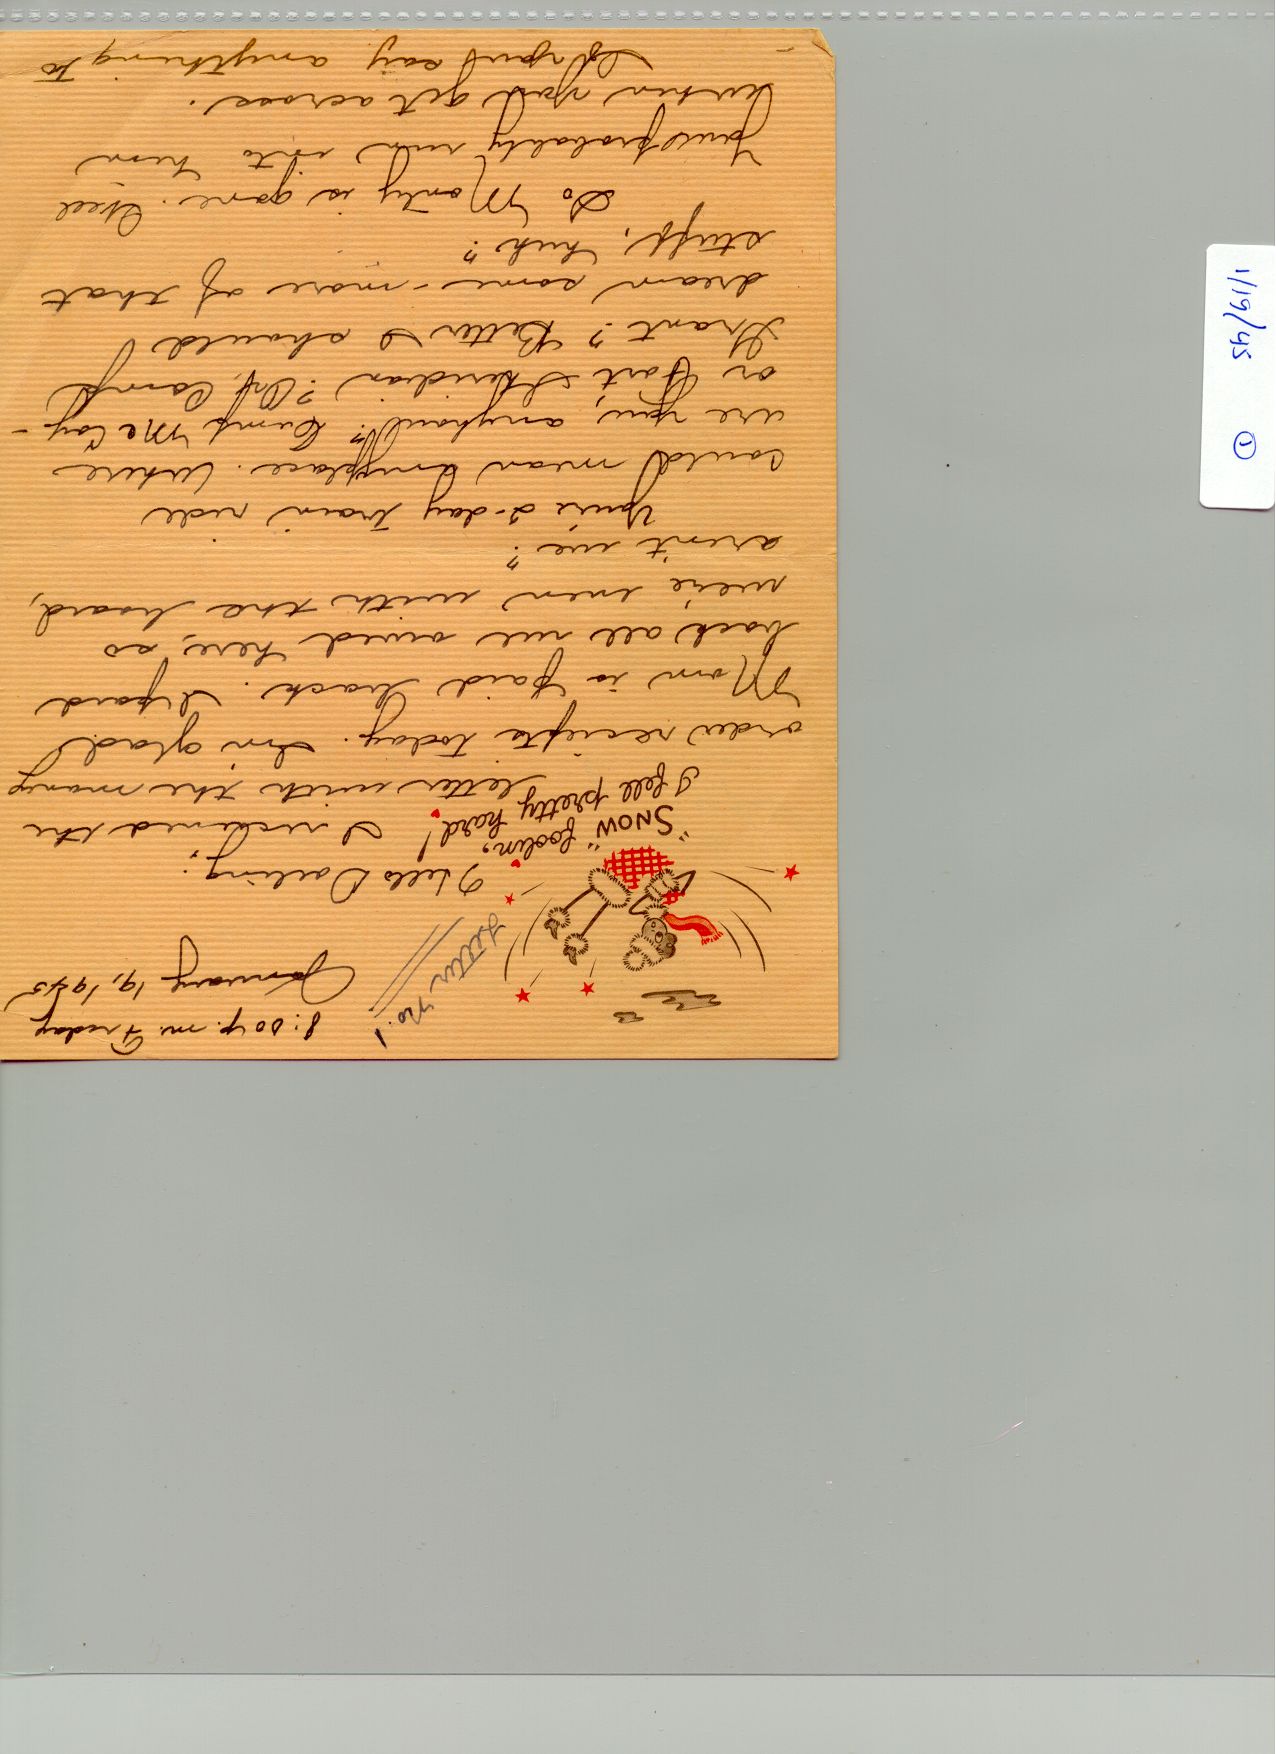 1/19/45 ①
8:00 p.m. Friday
January 19, 1945
Letter No. 1
"SNOW" foolin,
I fell pretty hard!
Hello Darling:
I recieved the
letter with the money
order reciepts today. I'm glad
Mom is paid back. I paid
back all we owed here, so
we're even with the board,
aren't we?
Your 2-day train ride
could mean anyplace. Where
are you, anyhow? Camp McCoy -
or Fort Sheridan? Or, Camp
Grant? Better I should
dream some - more of that
stuff, huh?
So Monty is gone.
You'll probably run into him
when you get across.
If you say anything to